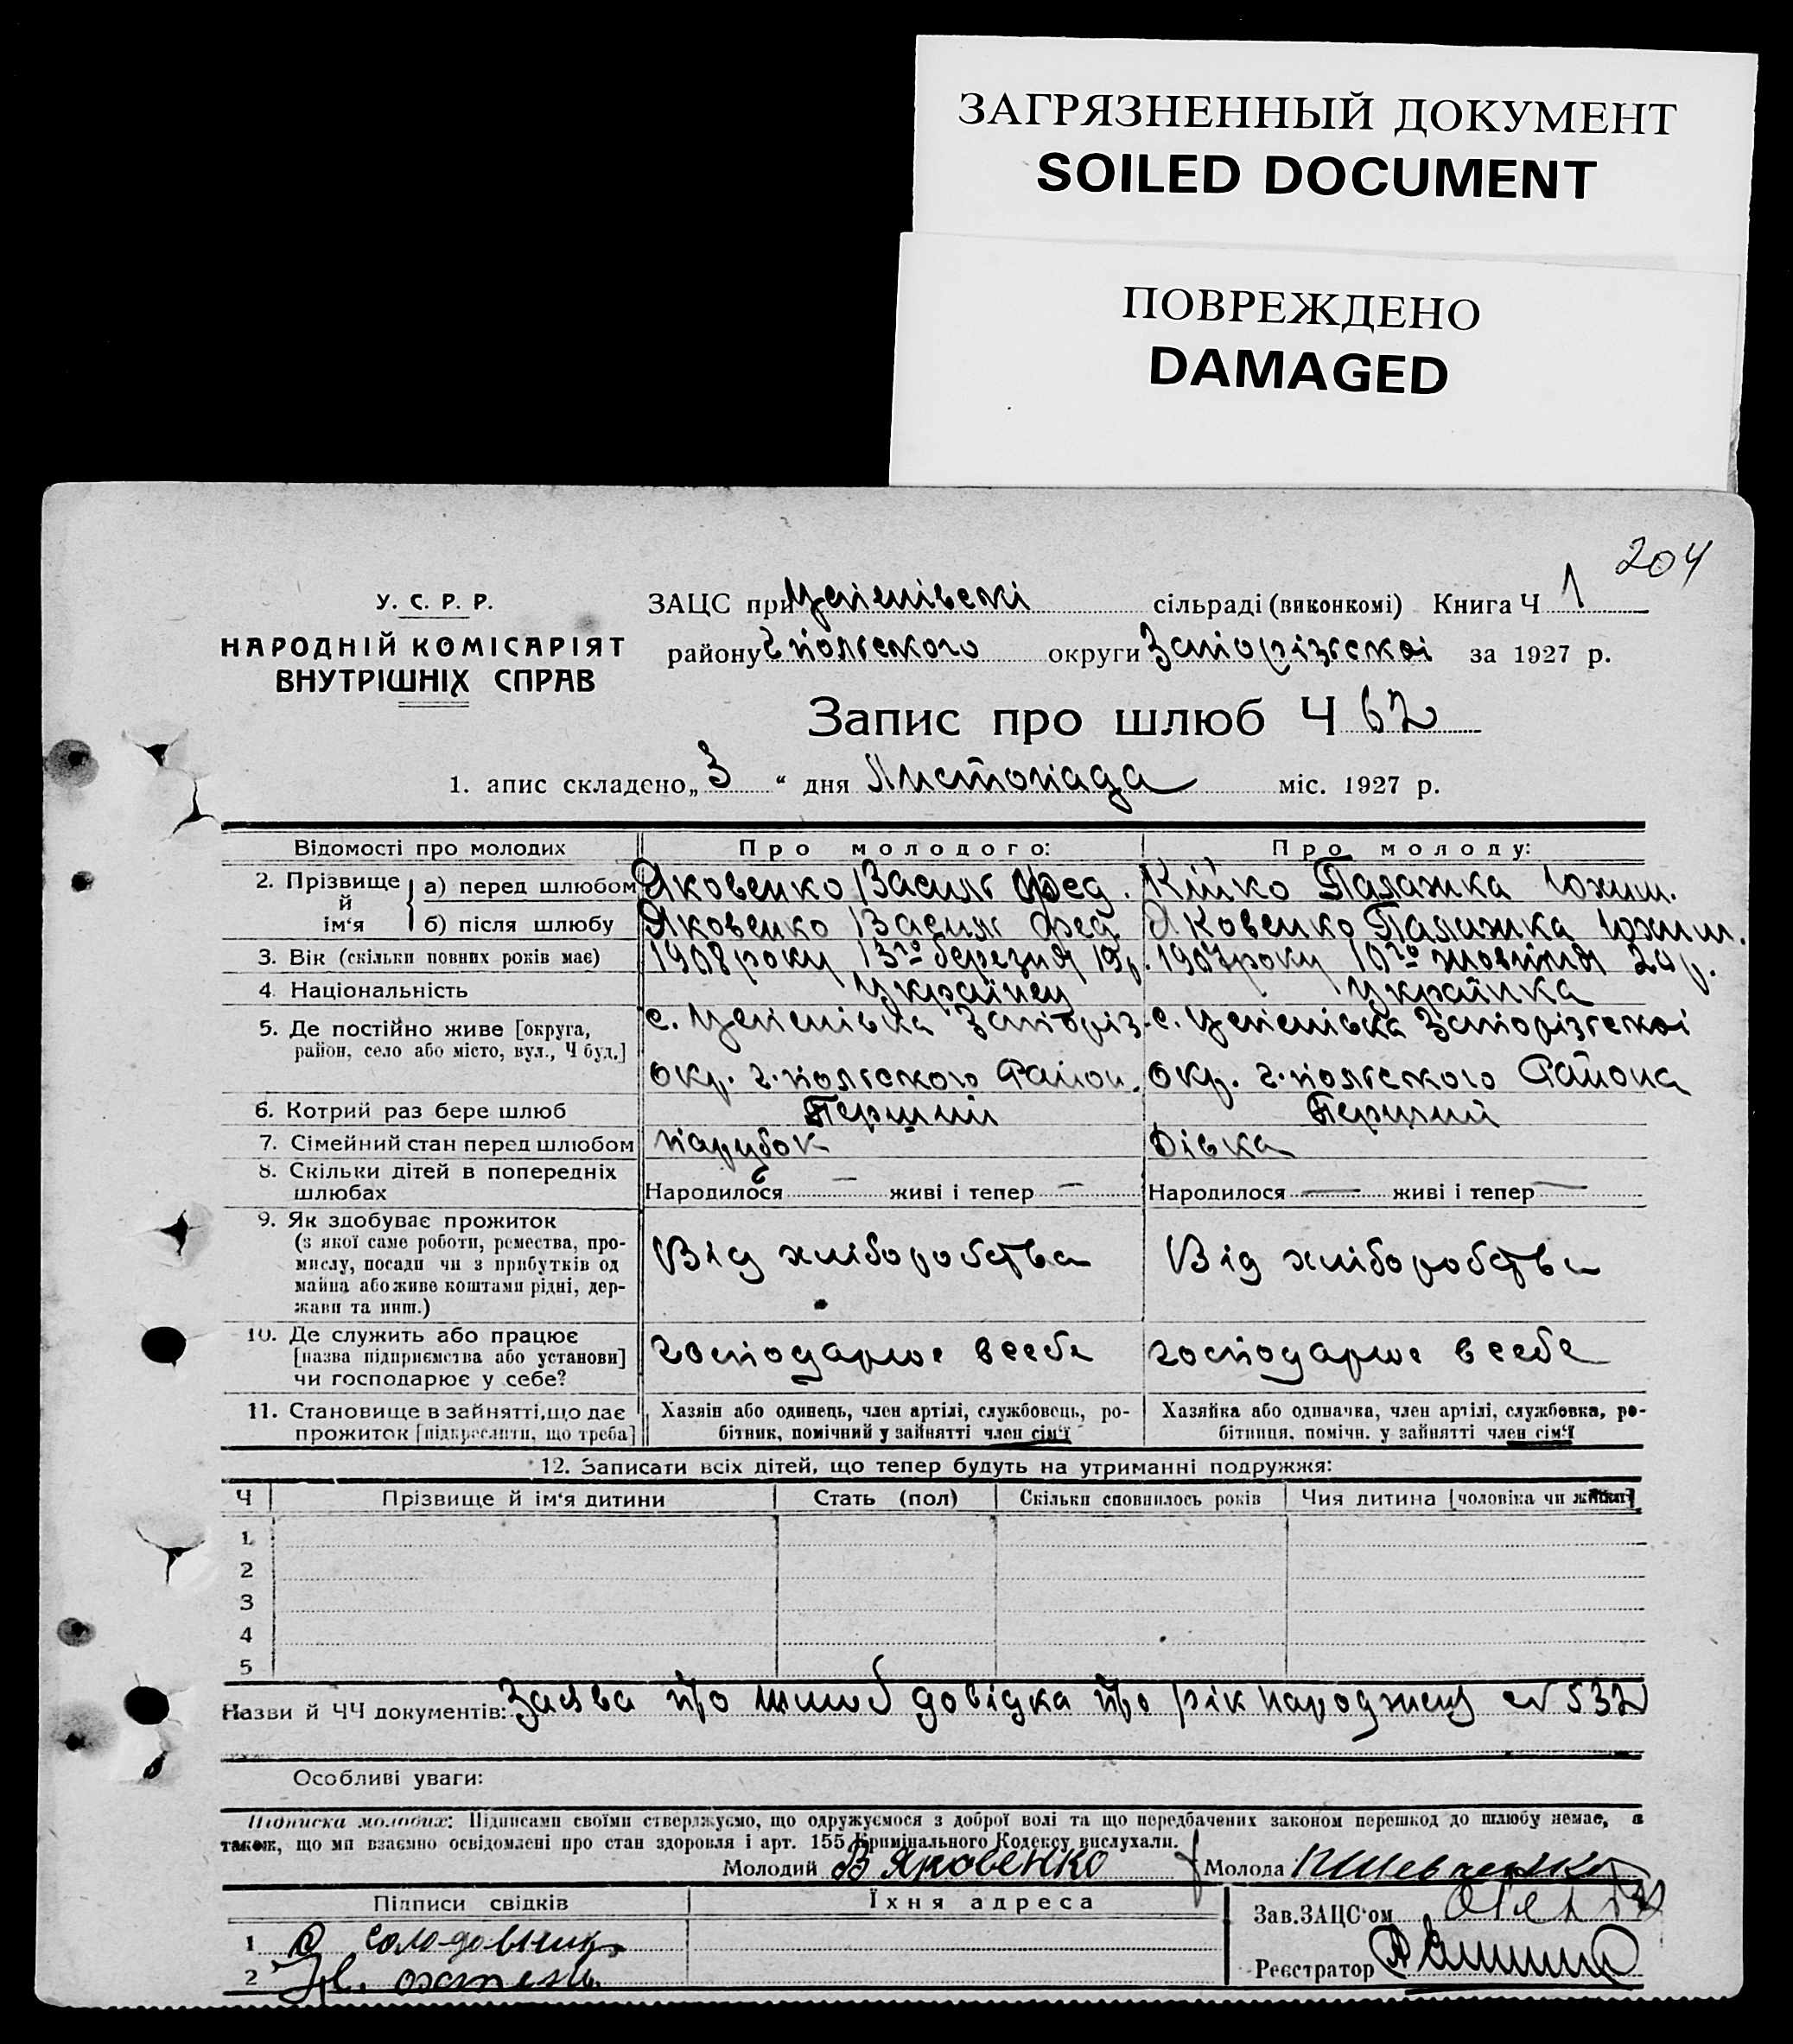 ЗАГРЯЗНЕННЫЙ ДОКУМЕНТ
SOILED DOCUMENT
ПОВРЕЖДЕНО
DAMAGED
204
У. С. Р. Р.
НАРОДНІЙ КОМІСАРІЯТ
ВНУТРІШНІХ СПРАВ
ЗАЦС при сільраді (виконкомі) Книга Ч 1
району г польського округи Запорізської за 1927 р.
Запис про шлюб Ч 62
1. апис складено „ 3 “ дня Листопада міс. 1927 р.
Відомості про молодих Про молодого: Про молоду:
2. Прізвище й ім‘я а) перед шлюбом Яковенко Василь Фед. Кійко Палажка
б) після шлюбу Яковенко Василь Фед. Яковенко Палажка
3. Вік (скільки повних років має) 1908 року 13го березня 19 р. 1907 року 10го жовтня 20 р.
4. Національність Українец Українка
5. Де постійно живе [округа, район, село або місто, вул., Ч буд.] с. Запоріз. с. Запорізської
окр. г. польського Район. окр. г. польського Района
6. Котрий раз бере шлюб Перший Перший
7. Сімейний стан перед шлюбом парубок Дівка
8. Скільки дітей в попередніх шлюбах Народилося — живі і тепер — Народилося — живі і тепер —
9. Як здобуває прожиток
(з якої саме роботи, ремества, про-
мислу, посади чи з прибутків од
майна або живе коштами рідні, дер-
жави та инш.) Від хліборобства Від хліборобства
10. Де служить або працює
[назва підприємства або установи]
чи господарює у себе? господарює в себе господарює в себе
11. Становище в зайнятті, що дає
прожиток [підкреслити, що треба]
Хазяін або одинець, член артілі, службовець, ро-
бітник, помічний у зайнятті член сім‘ї
Хазяйка або одиначка, член артілі, службовка, ро-
бітниця, помічн. у зайнятті член сім‘ї
12. Записати всіх дітей, що тепер будуть на утриманні подружжя:
Ч Прізвище й ім‘я дитини Стать (пол) Скільки сповнилось років Чия дитина [чоловіка чи жінки]
1
2
3
4
5
Назви й ЧЧ документів: Заява про шлюб довідка про рік народженя № 532
Особливі уваги:
Підписка молодих: Підписами своїми стверджуємо, що одружуємося з доброї волі та що передбачених законом перешкод до шлюбу немає, а
також, що ми взаємно освідомлені про стан здоровля і арт. 155 Кримінального Кодексу вислухали.
Молодий В Яковенко Молода
Підписи свідків Їхня адреса Зав. ЗАЦС‘ом
1 Солодовник
2
Реєстратор